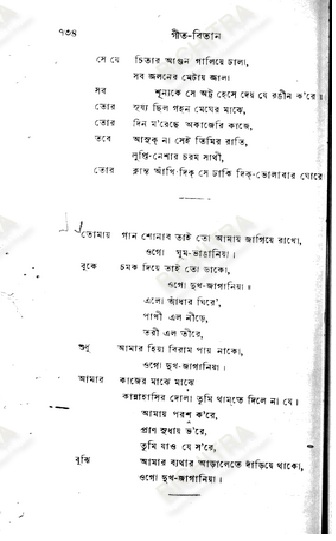 ৭৩৪ গীত-বিতান
সে যে চিতার আগুন গালিয়ে ঢালা,
সব জ্বলনের মেটায় জ্বালা।
সব শূন্যকে সে অট্ট হেসে দেয় যে রঙীন ক'রে॥
তোর সূর্য্য ছিল গহন মেঘের মাঝে,
তোর দিন ম'রেছে অকাজেরি কাজে,
তবে আসুক্ না সেই তিমির রাতি,
লুপ্তি-নেশার চরম সাথী,
তোর ক্লান্ত আঁখি দিক্ সে ঢাকি দিক্-ভোলাবার ঘোরে
তোমায় গান শোনাব তাই তো আমায় জাগিয়ে রাখো,
ওগো ঘুম-ভাঙানিয়া।
বুকে চমক দিয়ে তাই তো ডাকো,
ওগো দুখ-জাগানিয়া।
এলো আঁধার ঘিরে',
পাখী এল নীড়ে,
তরী এল তীরে,
শুধু আমার হিয়া বিরাম পায় নাকো,
ওগো দুখ-জাগানিয়া।
আমার কাজের মাঝে মাঝে
কান্নাহাসির দোলা তুমি থাম্‌তে দিলে না যে।
আমায় পরশ ক'রে,
প্রাণ সুধায় ভ'রে,
তুমি যাও যে স'রে,
বুঝি আমার ব্যথার আড়ালেতে দাঁড়িয়ে থাকো,
ওগো দুখ-জাগানিয়া।